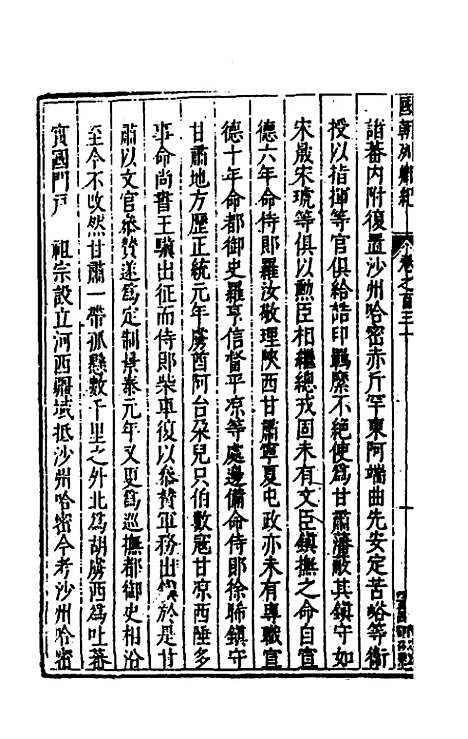 國朝列卿紀 卷之一百三十
諸番内附復置沙州哈密赤斤罕東阿端曲先安定苦峪等衞
授以指揮等官俱給誥印羈縻不絶使為甘肅藩蔽其鎮守如
宋晟宋琥等俱以勲臣相繼總戎固未有文臣鎮撫之命自宣
德六年命侍郎羅汝敬理陜西甘肅寧夏屯政亦未有專職宣
德十年命都御史羅亨信督平凉等處邊備命侍郎徐晞鎮守
甘肅地方歷正統元年虜酋阿台朶兒只伯數冦甘凉西陲多
事命尚書王驥出征而侍郎柴車復以叅賛軍務出鎮於是甘
肅以文官叅賛遂為定制景泰元年又更為巡撫都御史相沿
至今不攺然甘肅一帶孤懸數千里之外北為胡虜西為吐蕃
實國門戶 祖宗設立河西疆域抵沙州哈密今考沙州哈密